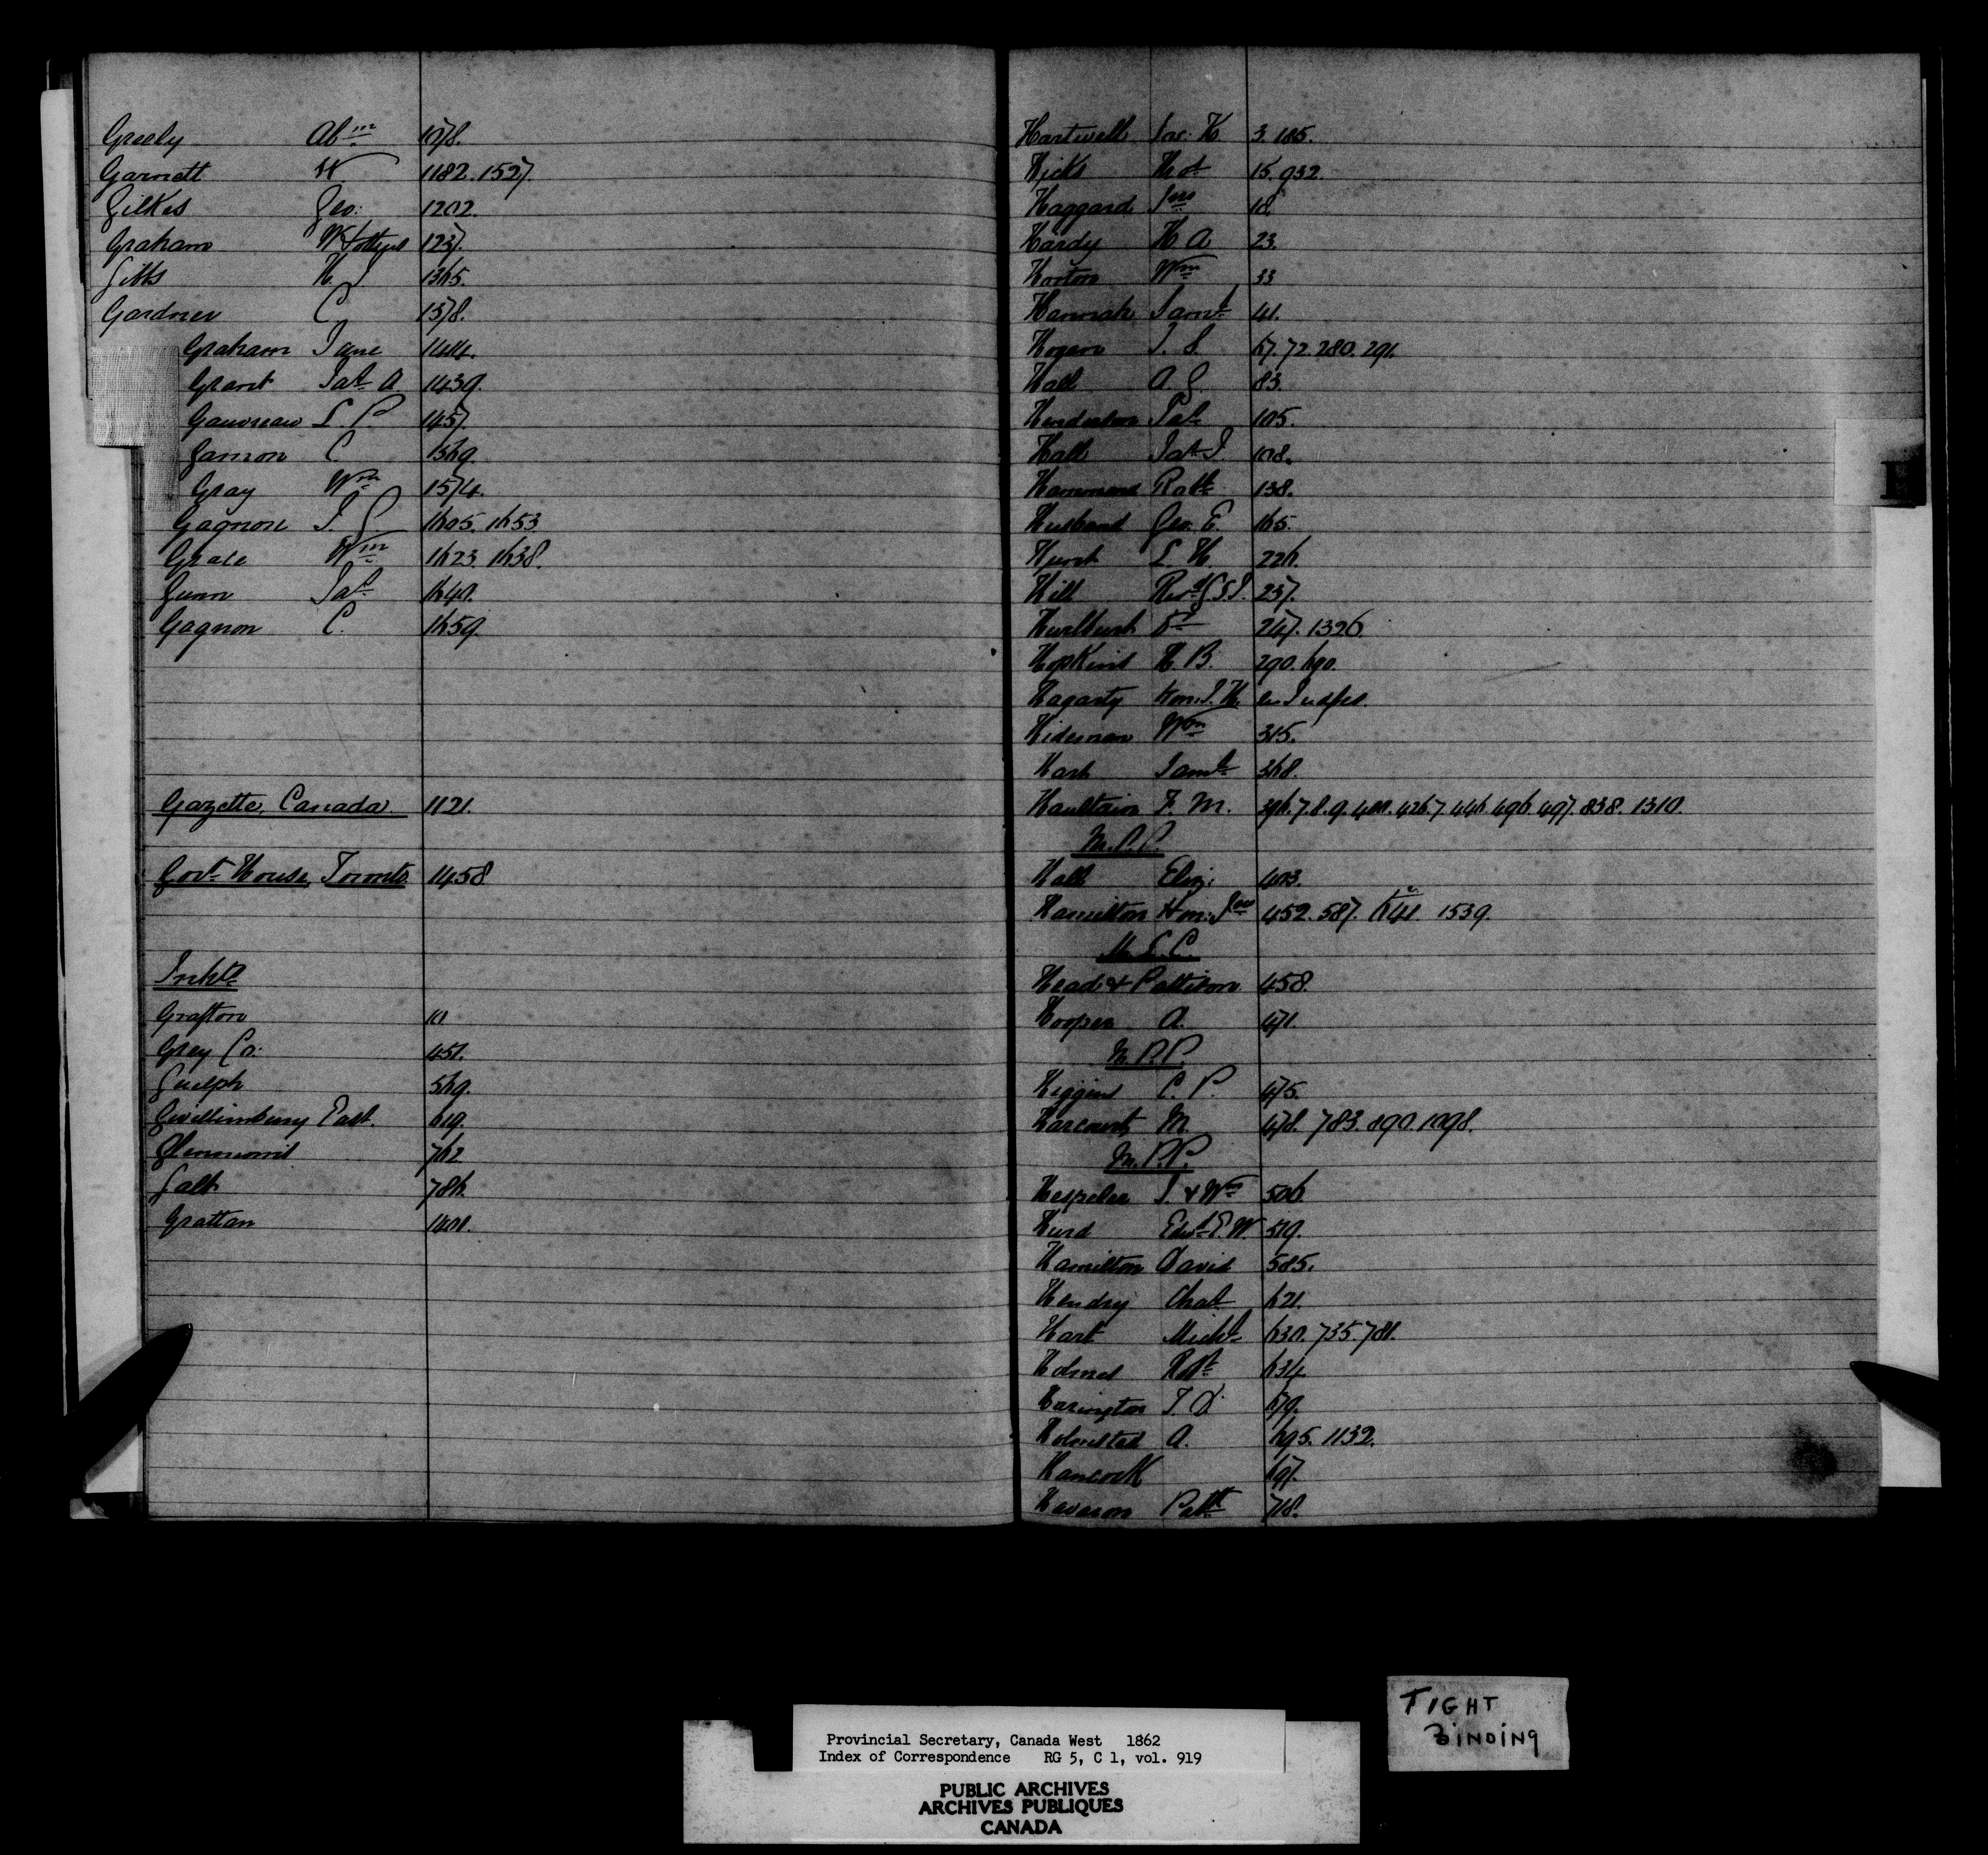 Greely Abm 1078.
Garnett W 1182. 1527
Gilkes Geo: 1202.
Graham W & others 1237.
Gibbs H. J 1365.
Gardner C 1378.
Graham Jane 1414.
Grant Jas A 1439.
Gauvreau L. P. 1457.
Gamon C. 1569.
Gray Wm 1574.
Gagnon J. G. 1605. 1653
Grace Wm 1623. 1638.
Gunn Jas 1640.
Gagnon C. 1659.
Gazette, Canada. 1121.
Govt House, Toronto 1458
Inhts
Grafton 10
Grey Co. 451.
Guelph 569.
Gwillimbury East. 619.
762
Galt 786.
Grattan 1401.
Hartwell Jos. K 3. 185.
Hicks Thos 15. 932.
Haggard Jno 18.
Hardy H A 23.
Horton Wm 33
Hannah Saml 41.
Hogan J. S. 67. 72. 280. 291.
Hall A G. 83.
Henderson Jas 105.
Hall Jas J. 108.
Hammond Robt 138.
Husband Geo. E. 165.
Hunt L. H. 226.
Hill Revd G S J. 237.
Hurlburt Dr 247. 1326.
Hopkins H. B. 290. 690.
Hagarty Hon. J. H. see Judges.
Hideman Wm 315.
Hart Saml 368.
Haultain F. M. 396. 7. 8. 9. 400. 426. 7. 446. 496. 497. 838. 1310.
M.P.P.
Hall Eliz: 403.
Hamilton Hon: Jno 452. 587. 641. 1539.
M.L.C.
Head & Pattison 458.
Hooper A. 471.
M.P.P.
Higgins C. P. 475.
Harcourt M. 478. 783. 890. 1098.
M.P.P.
Hespeler J. & Wm 506
Hurd Edwd E. W 519.
Hamilton David 585.
Hendry Chas 621.
Hart Michl 630. 735. 781.
Holmes Robt 634
Harington T. D. 679.
Holmsted A. 695. 1132.
Hancock 697.
Haveron Patk 718.
I
TIGHT
BINDING
Provincial Secretary, Canada West 1862
Index of Correspondence RG 5, C 1, vol. 919
PUBLIC ARCHIVES
ARCHIVES PUBLIQUES
CANADA